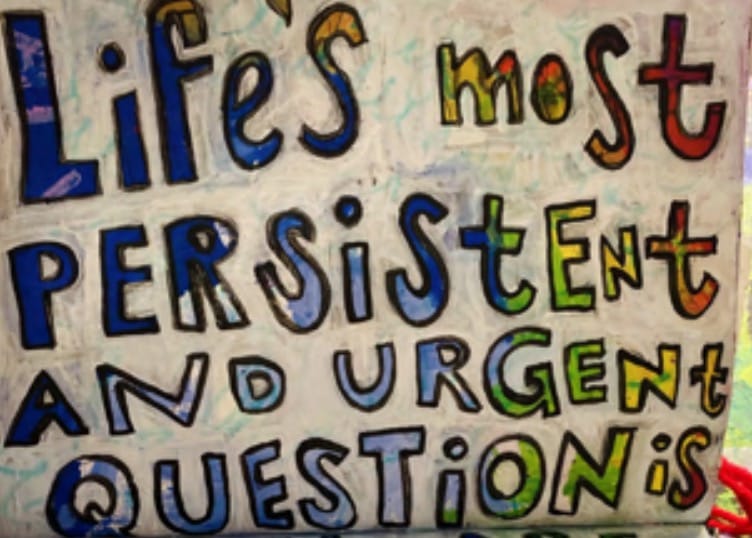 Life's most
PERSiStENt
AND URGENt
QUESTiON iS